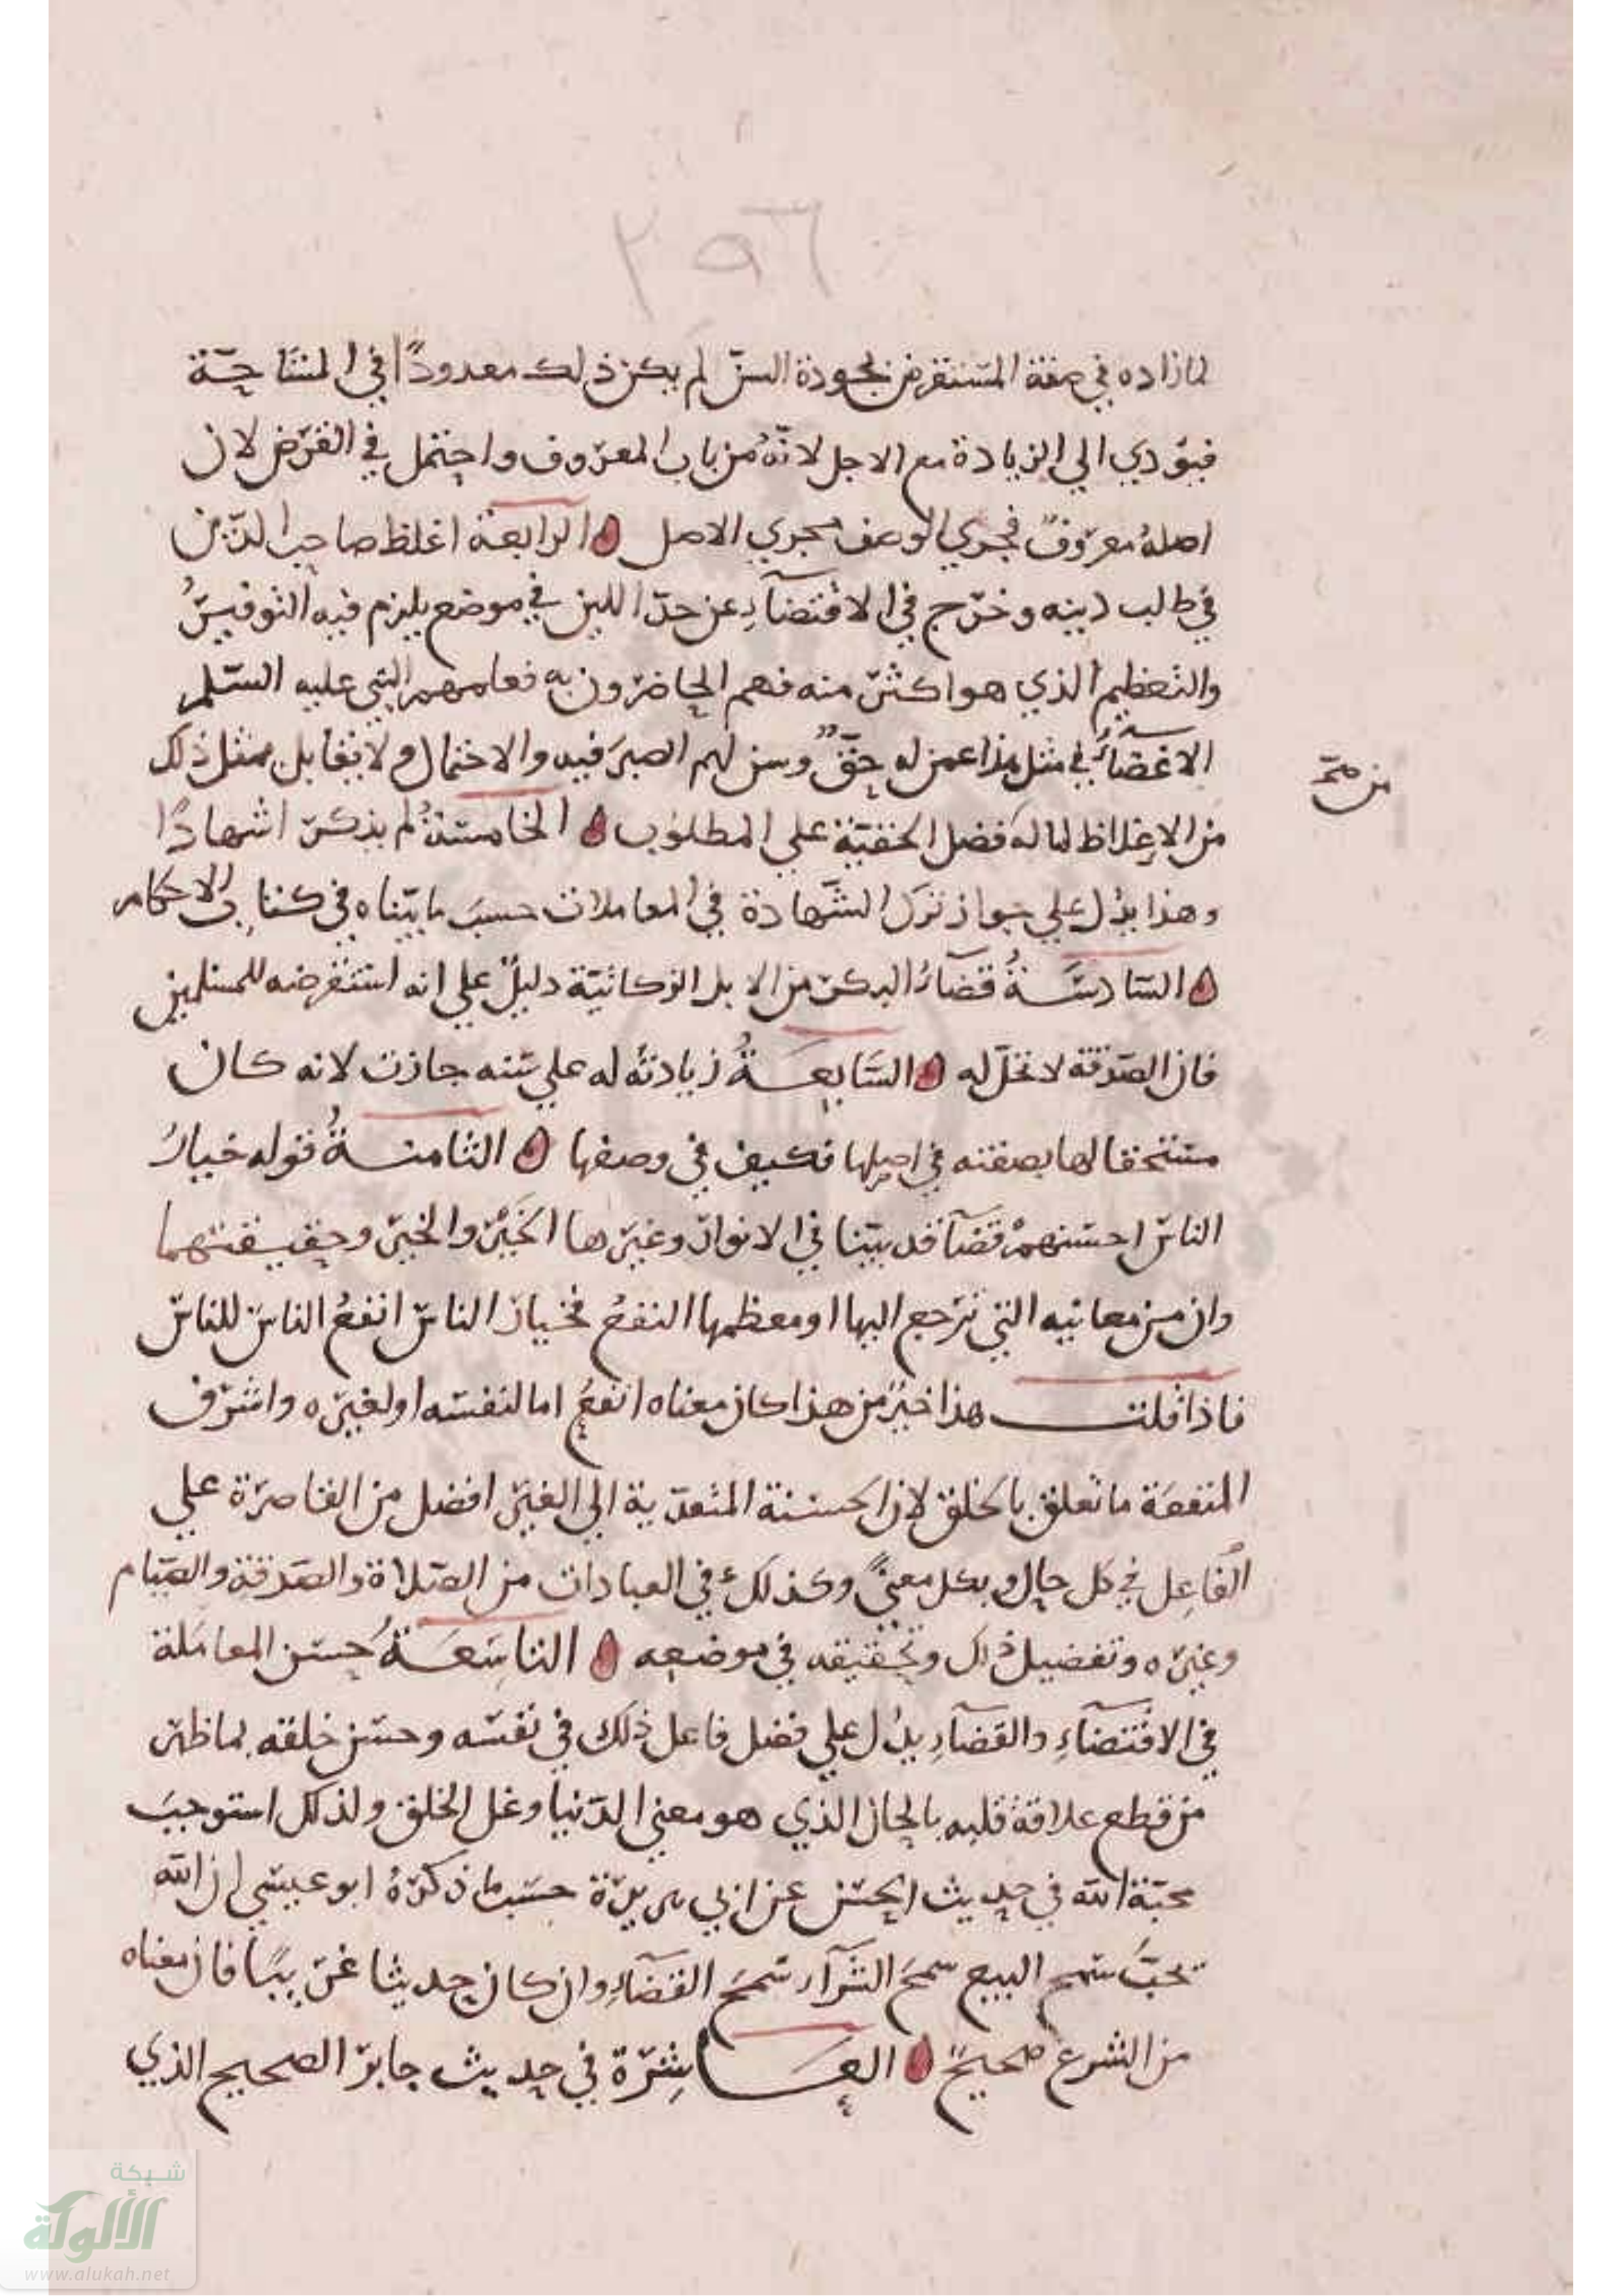 ٢٥٦
لما زاده في صفة المستقرض بجودة السن لم يكن ذلك معدودًا في المشاحة
فيؤدي الي الزيادة مع الاجل لانّهُ من باب المعروف واحتمل في القرض لان
اصلهُ معروفٌ فجري الوصف مجري الاصل الرابعة اغلظ صاحب الدّين
في طلب دينه وخرج في الاقتضآءِ عن حدّ اللين في موضع يلزم فيه التوقيرُ
والتعظيم الذي هو اكثر منه فهم الحاضرون به فعلمهم النبي عليه السلم
الاغضآءَ في مثل هذا عمن له حقّ وسن لهم الصبرَ فيه والاحتمال ولا يقابل مثل ذلك
من صح
من الاغلاظ لما لهُ فضل الحقيّة علي المطلوب الخامسةُ لم يذكر اشهادًا
وهذا يدُل علي جواز ترك الشّهادة في المعاملات حسبَ ما بيّناه في كتاب الاحكام
السّادسَةُ قضآءُ البكر من الابل الزكاتيّة دليلٌ علي انه استقرضه للمسلمين
فان الصّدقة لا تحلّ له السّابعَةُ زيادتُه له علي سّنه جازت لانه كان
مستحقا لها بصفته في اصلها فكيف في وصفها الثامنةُ قوله خيارُ
الناس احسنهمْ قضآ قد بيّنا في الانوار وغيرها الخَيْر والخير وحقيقتهما
وان من معانيه التي ترجع اليها او معظمها النفعُ فخيار الناس انفعُ الناسَ للناس
فاذا قلت هذا خيرٌ من هذا كان معناه انفعُ اما لنفسه او لغيره واشرف
المنفعَة ما تعلق بالخلق لان الحسنة المتعدّية الي الغير افضل من القاصرة علي
الفَاعِل في كل حال وبكل معنيً وكذلك في العبادات من الصّلاة والصّدقةِ والصّيام
وغيره وتفضيل ذلك وتحقيقه في موضعه التاسِعَةُ حسن المعاملة
في الاقتضآءِ والقضآءِ يدُل علي فضل فاعل ذلك في نفسه وحسن خلقه بما ظهر
من قطع علاقة قلبه بالمال الذي هو معني الدّنيا وغل الخلق ولذلك استوجبَ
محبّة الله في حديث الحسن عن ابي هريرة حسَب ما ذكرهُ ابو عيسي ان الله
يحبّ سمح البيع سمحَ الشرآء سمحَ القضآءِ وان كان حديثا غريبًا فان معناه
من الشرع صحيحٌ العَاشِرَة في حديث جابر الصحيح الذي
شبكة
الألوكة
www.alukah.net